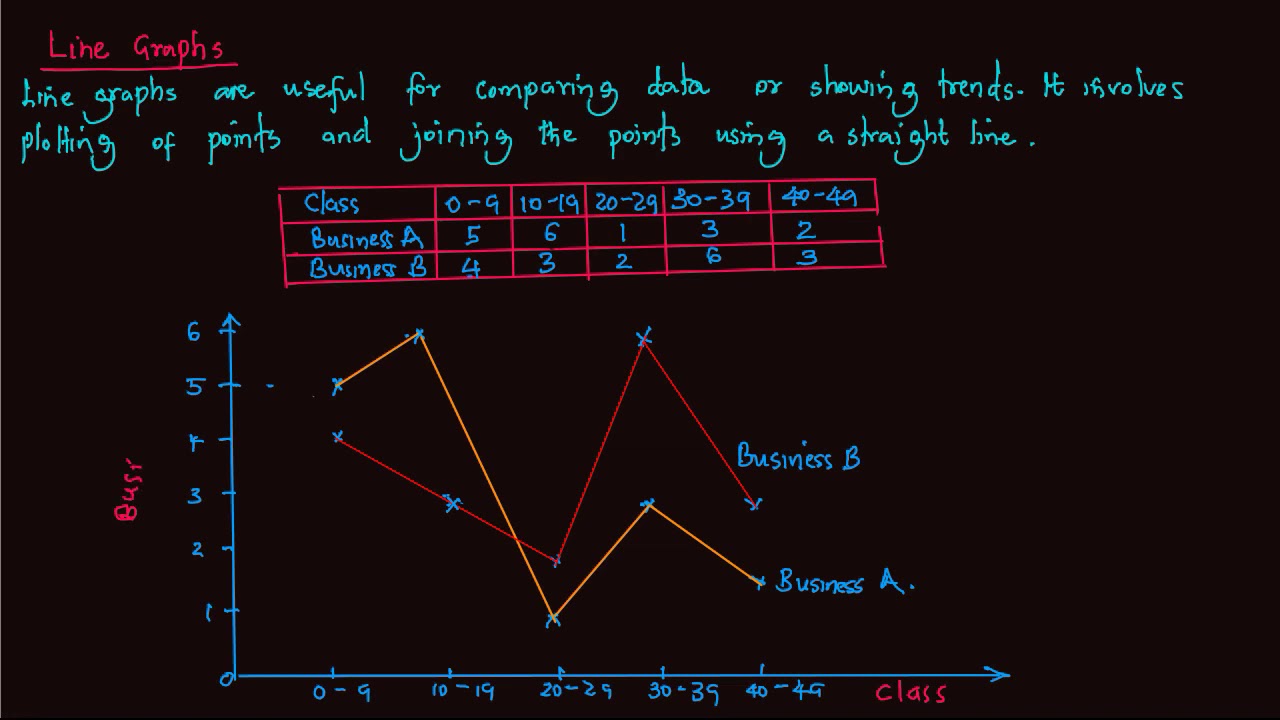 Line Graphs
Line graphs are useful for comparing data or showing trends. It involves
plotting of points and joining the points using a straight line.
Class 0-9 10-19 20-29 30-39 40-49
Business A 5 6 1 3 2
Business B 4 3 2 6 3
6
5
4
3
2
1
0
Busi
Business B
Business A.
0-9 10-19 20-29 30-39 40-49 Class